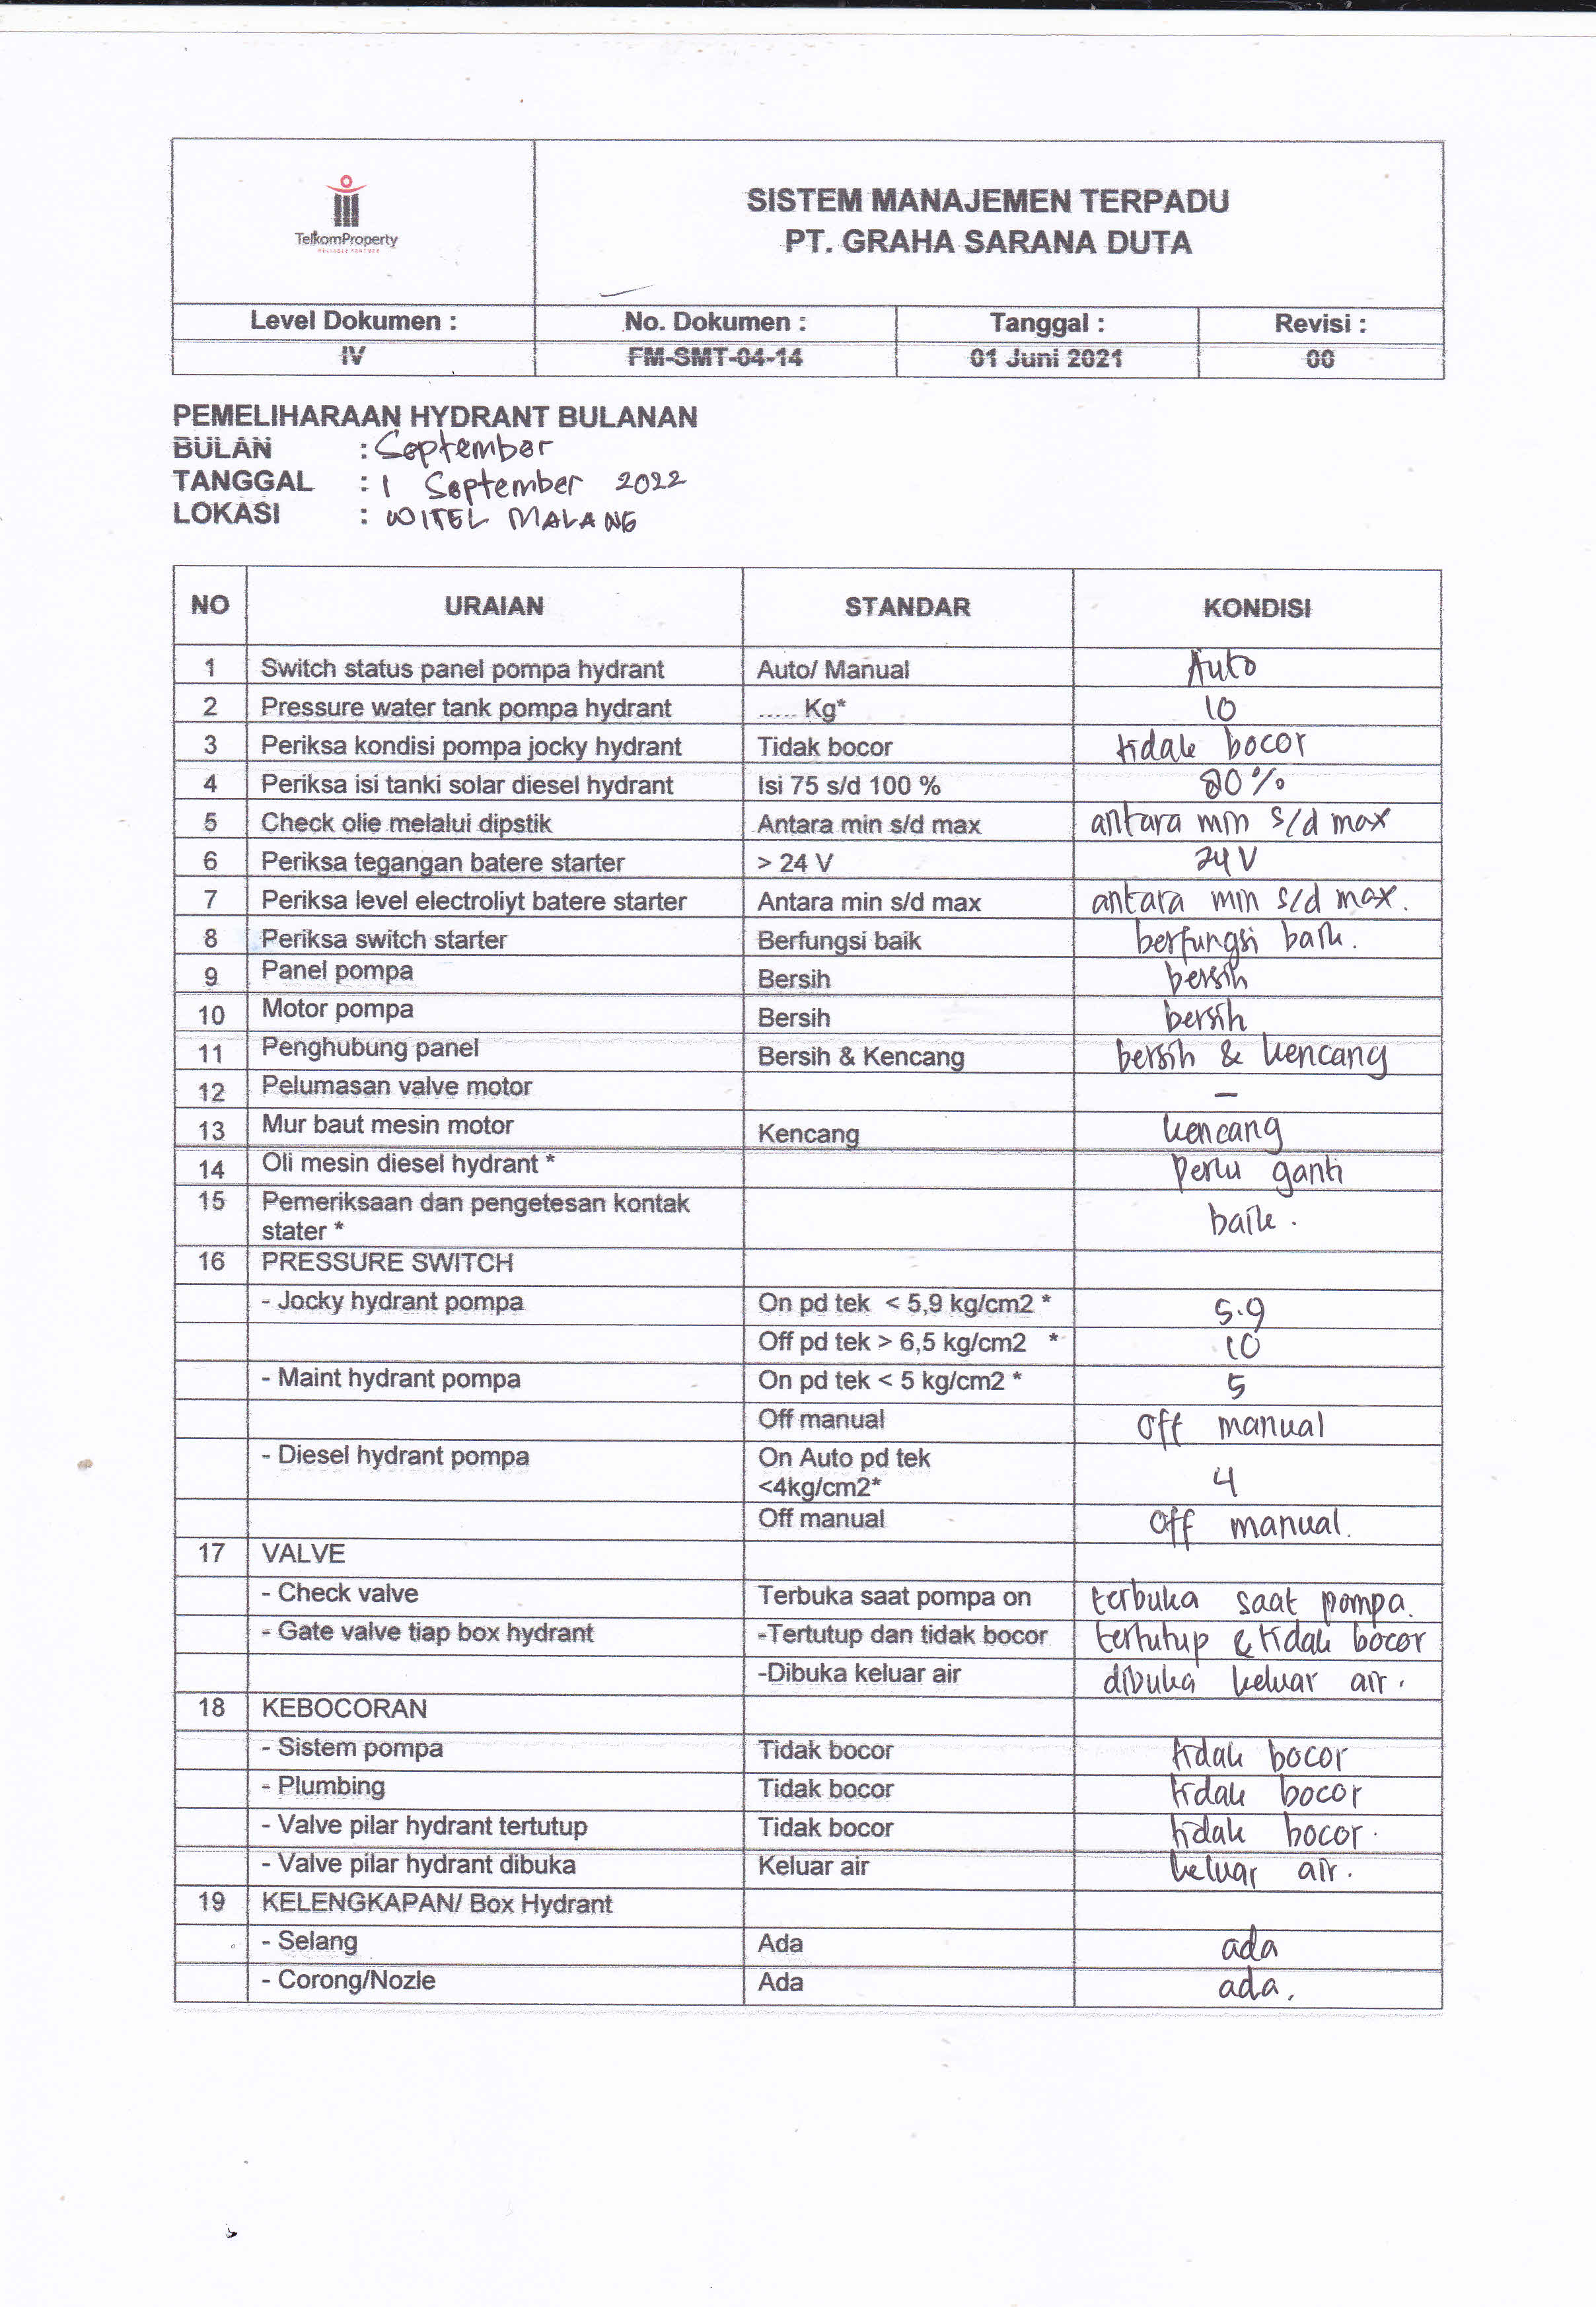 TelkomProperty
SISTEM MANAJEMEN TERPADU
PT. GRAHA SARANA DUTA
Level Dokumen : No. Dokumen : Tanggal : Revisi :
IV FM-SMT-04-14 01 Juni 2021 00
PEMELIHARAAN HYDRANT BULANAN
BULAN : September
TANGGAL : 1 September 2022
LOKASI : WITEL MALANG
NO URAIAN STANDAR KONDISI
1 Switch status panel pompa hydrant Auto/ Manual Auto
2 Pressure water tank pompa hydrant ..... Kg* 10
3 Periksa kondisi pompa jocky hydrant Tidak bocor tidak bocor
4 Periksa isi tanki solar diesel hydrant Isi 75 s/d 100 % 80%
5 Check olie melalui dipstik Antara min s/d max antara min s/d max
6 Periksa tegangan batere starter > 24 V 24 V
7 Periksa level electroliyt batere starter Antara min s/d max antara min s/d max.
8 Periksa switch starter Berfungsi baik berfungsi baik.
9 Panel pompa Bersih bersih
10 Motor pompa Bersih bersih
11 Penghubung panel Bersih & Kencang bersih & kencang
12 Pelumasan valve motor –
13 Mur baut mesin motor Kencang kencang
14 Oli mesin diesel hydrant * Perlu ganti
15 Pemeriksaan dan pengetesan kontak
stater * baik.
16 PRESSURE SWITCH
- Jocky hydrant pompa On pd tek < 5,9 kg/cm2 * 5.9
Off pd tek > 6,5 kg/cm2 * 10
- Maint hydrant pompa On pd tek < 5 kg/cm2 * 5
Off manual Off manual
- Diesel hydrant pompa On Auto pd tek
<4kg/cm2* 4
Off manual Off manual.
17 VALVE
- Check valve Terbuka saat pompa on terbuka saat pompa.
- Gate valve tiap box hydrant -Tertutup dan tidak bocor tertutup & tidak bocor
-Dibuka keluar air dibuka keluar air.
18 KEBOCORAN
- Sistem pompa Tidak bocor tidak bocor
- Plumbing Tidak bocor tidak bocor
- Valve pilar hydrant tertutup Tidak bocor tidak bocor.
- Valve pilar hydrant dibuka Keluar air keluar air.
19 KELENGKAPAN/ Box Hydrant
- Selang Ada ada
- Corong/Nozle Ada ada.